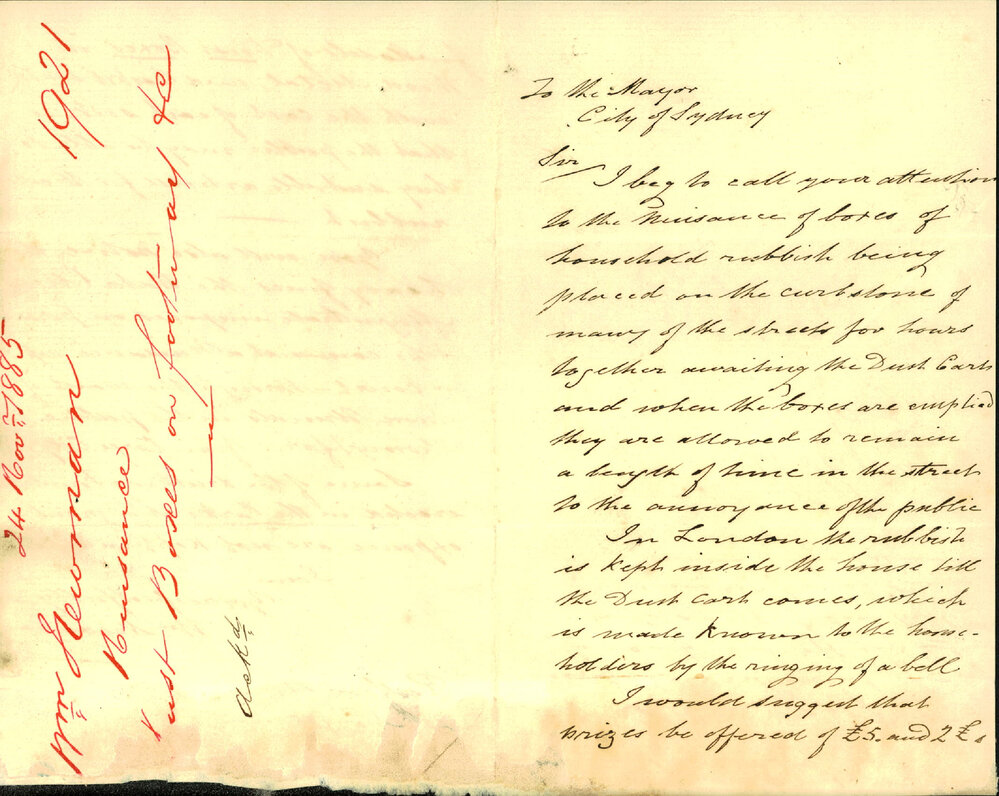 24 Novr. 1885
Wm. Newman 1921
Nuisance
Dust Boxes on footway &c
Ackd.
To the Mayor
City of Sydney
Sir
I beg to call your attention
to the Nuisance of boxes of
household rubbish being
placed on the curbstone of
many of the streets for hours
together awaiting the Dust Carts
and when the boxes are emptied
they are allowed to remain
a length of time in the street
to the annoyance of the public
In London the rubbish
is kept inside the house till
the Dust Cart comes, which
is made known to the house-
holders by the ringing of a bell
I would suggest that
prizes be offered of £5. and 2£.